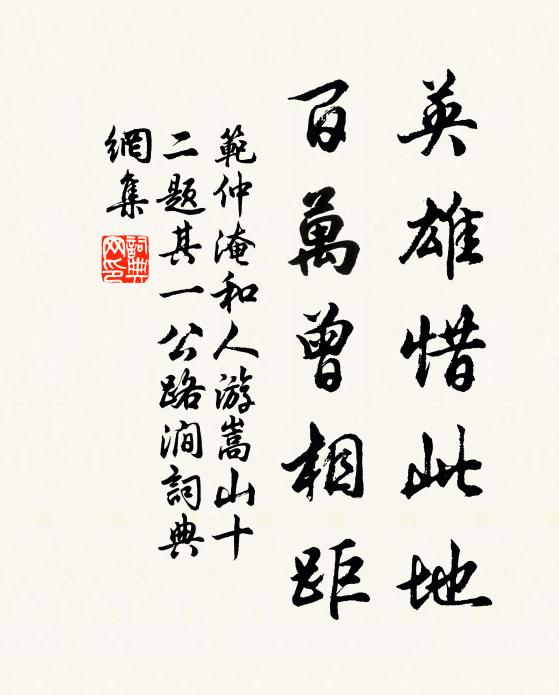 英雄惜此地
百萬曾相距
範仲淹和人游嵩山十
二題其一公路澗詞典
網集
詞典网印